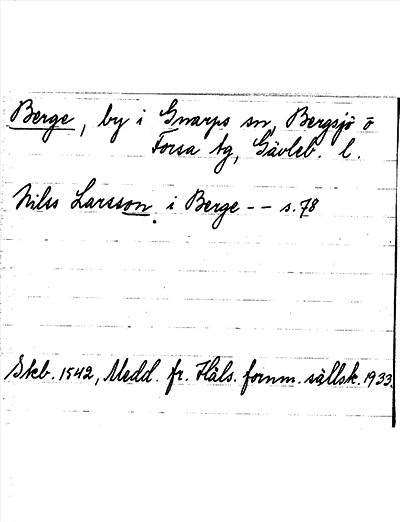 Berge, by i Gnarps sn, Bergsjö o
Forsa tg, Gävleb. l.
Nilss Larsson i Berge -- s. 78
Skb. 1542, Medd. fr. Häls. fornm. sällsk. 1933.